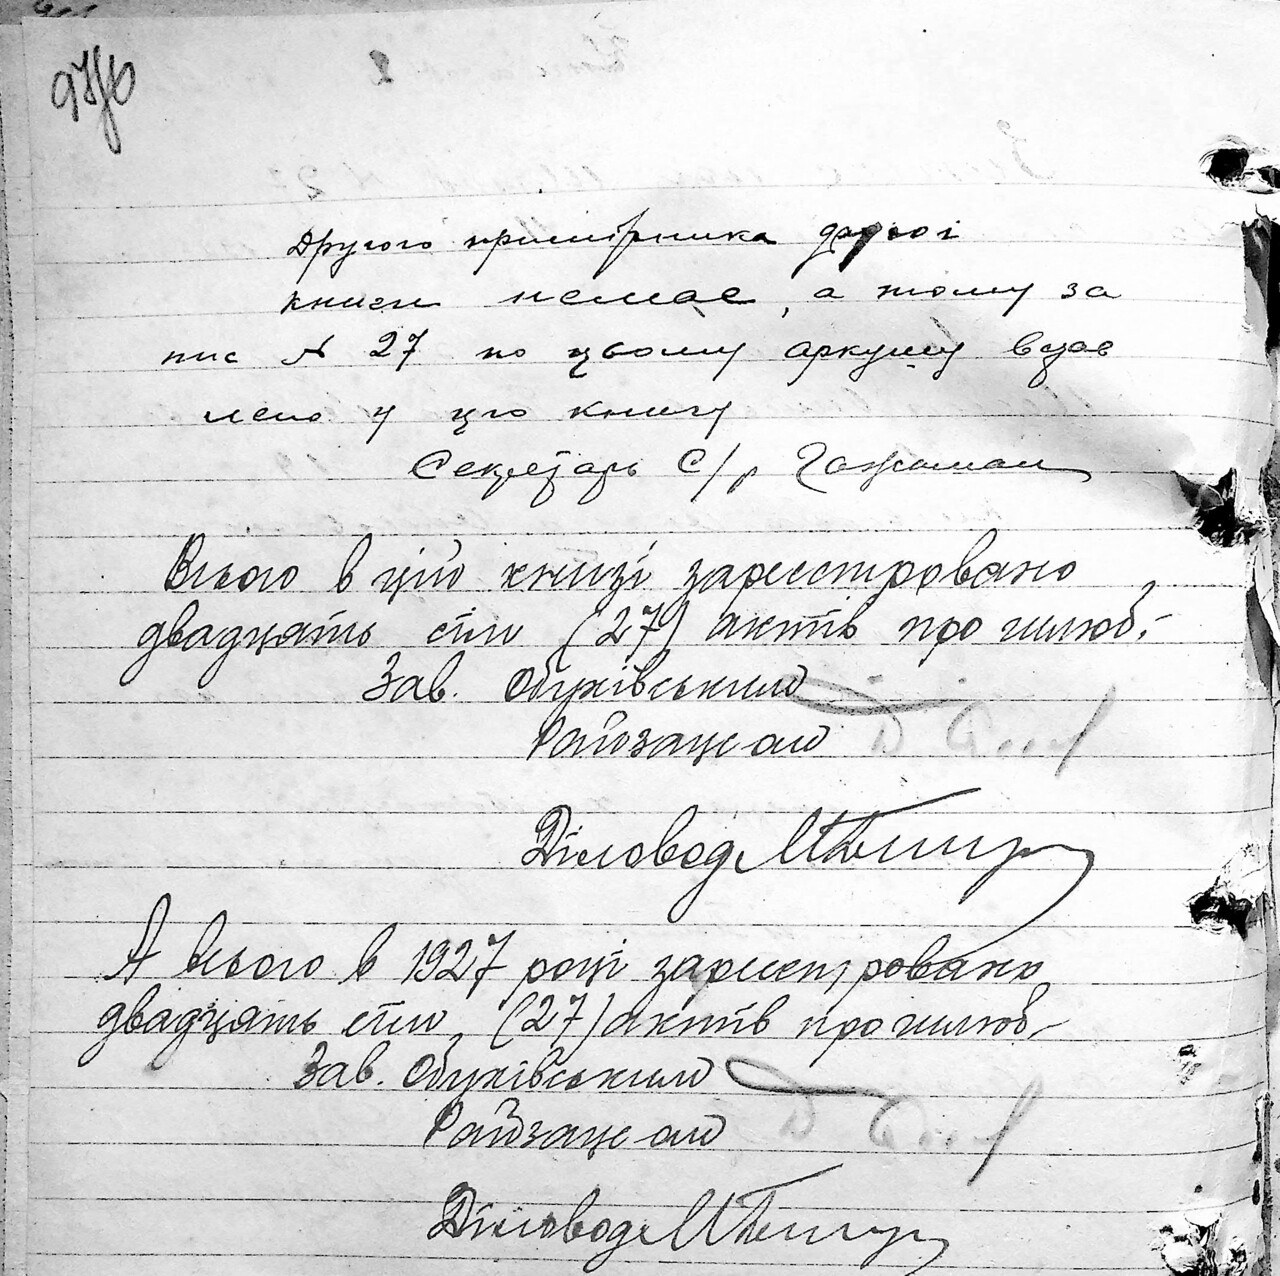 Другого примірника другої
книги немає, а тому за
пис № 27 по цьому аркушу вдав
лено у цю книгу
Секретарь С/р
Всього в цій книзі зареєстровано
двадцять сім (27) актів про шлюб.-
Зав. Обухівським
Райзагс'ом
Діловод
А всього в 1927 році зареєстровано
двадцять сім (27) актів про шлюб.-
Зав. Обухівським
Райзагс'ом
Діловод